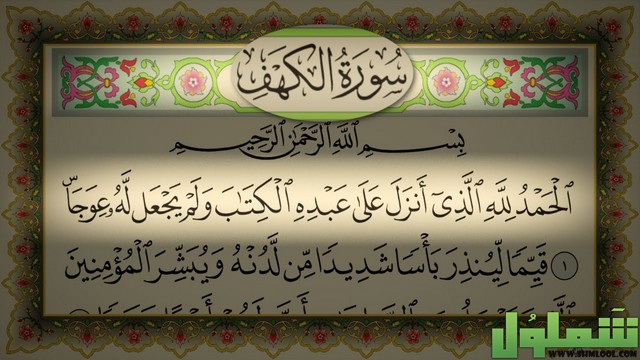 سُورَةُ الكَهْفِ
بِسْمِ اللَّهِ الرَّحْمَٰنِ الرَّحِيمِ
ٱلْحَمْدُ لِلَّهِ ٱلَّذِىٓ أَنزَلَ عَلَىٰ عَبْدِهِ ٱلْكِتَٰبَ وَلَمْ يَجْعَل لَّهُۥ عِوَجَاۜ
١ قَيِّمًا لِّيُنذِرَ بَأْسًا شَدِيدًا مِّن لَّدُنْهُ وَيُبَشِّرَ ٱلْمُؤْمِنِينَ
شملول
WWW.SHMLOOL.COM